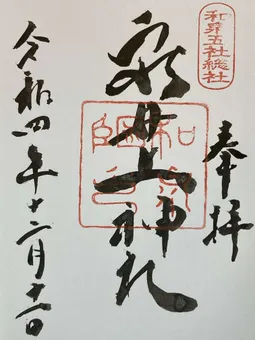 和泉五社総社
奉拝
泉井上神社
令和四年十二月十一日